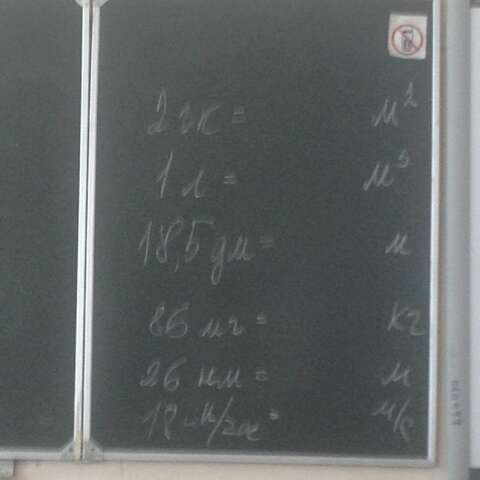 2 гк = м²
1 л = м³
18,5 дм = м
86 мг = кг
26 нм = м
18 м/час = м/с